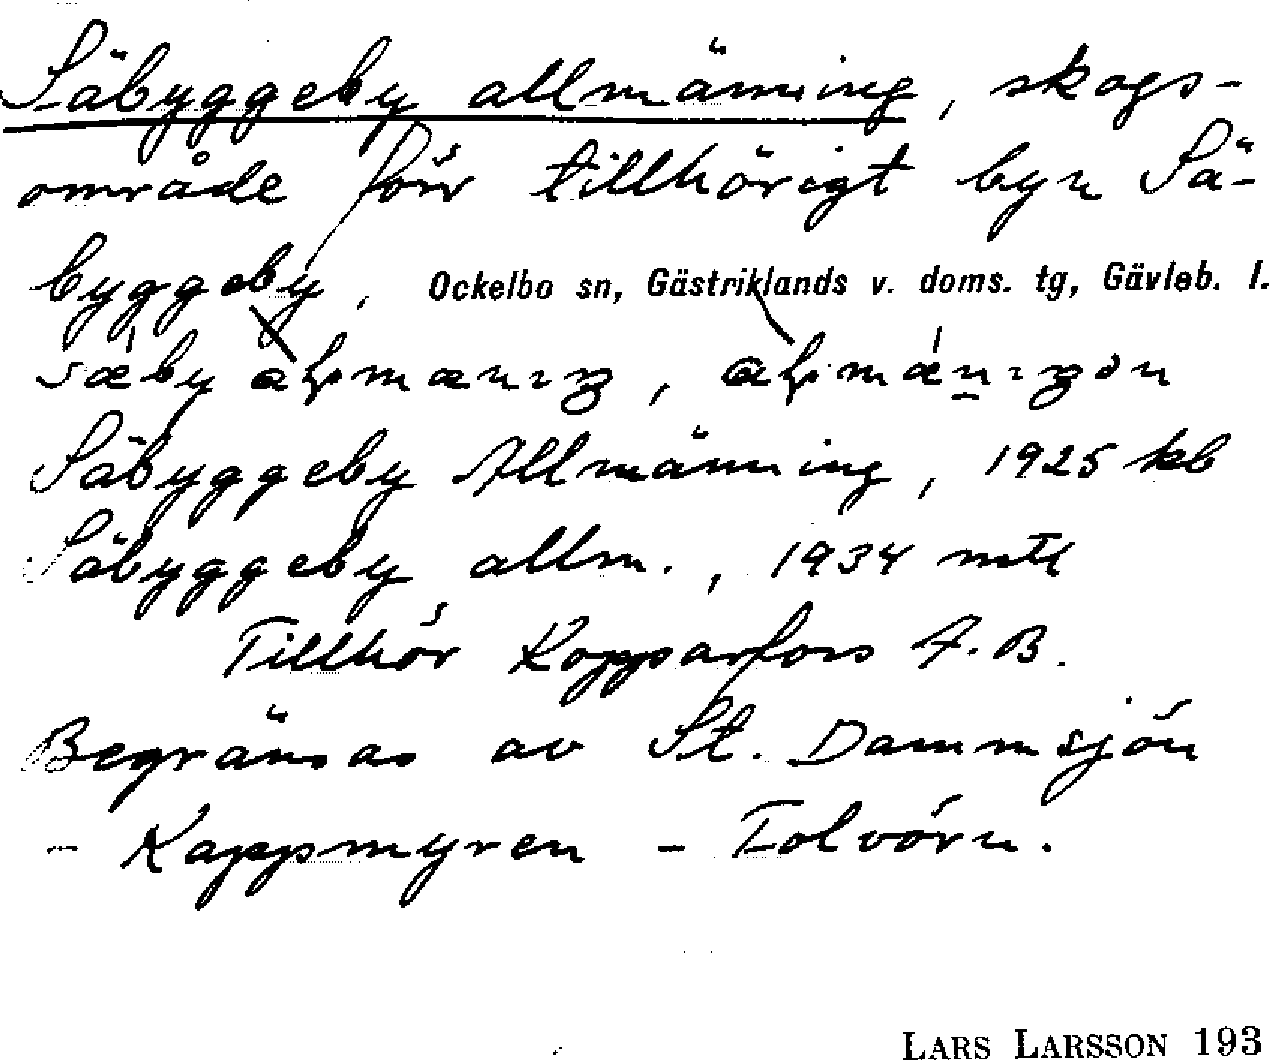 Säbyggeby allmänning, skogs-
område förr tillhörigt byn Sä-
byggeby, Ockelbo sn, Gästriklands v. doms. tg, Gävleb. l.
Säbyggeby Allmänning, 1925 kb
Säbyggeby allm., 1934 mtl
Tillhör Kopparfors A.B.
Begränsas av St. Dammsjön
- Kappmyren - Tolvörn.
LARS LARSSON 193